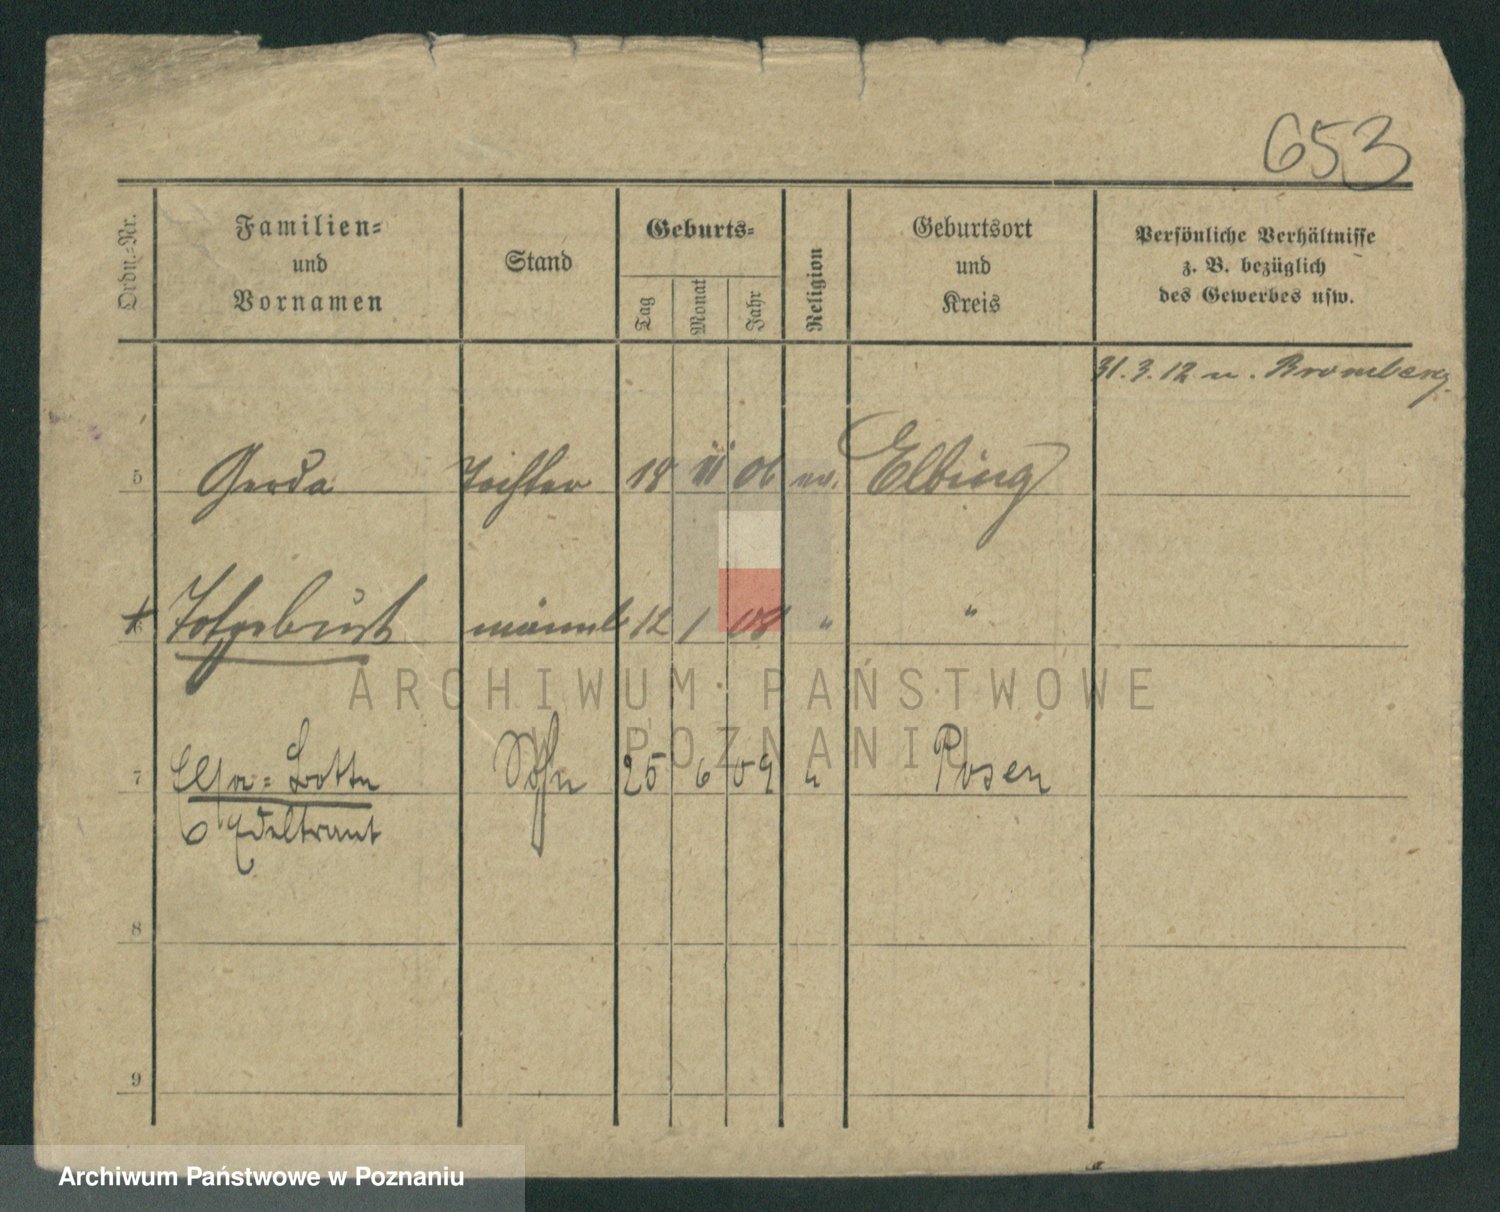 653
Ordn.-Nr.
Familien-
und
Vornamen
Stand
Geburts-
Tag
Monat
Jahr
Religion
Geburtsort
und
Kreis
Persönliche Verhältnisse
z. B. bezüglich
des Gewerbes usw.
31. 3. 12 n. Bromberg.
5 Gerda Tochter 18 06 ev. Elbing
Totgeburt männl 12 1 08 " "
7 Elsa-Lotte Sohn 25 6 09 " Posen
Edeltraut
8
9
ARCHIWUM PAŃSTWOWE
W POZNANIU
Archiwum Państwowe w Poznaniu